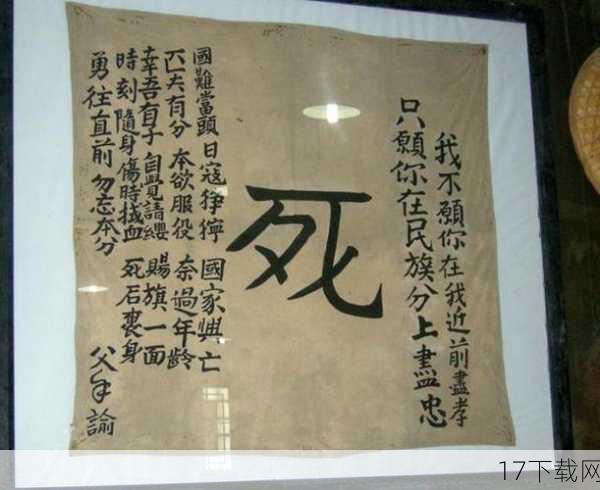 我不願你在我近前盡孝
只願你在民族分上盡忠
死
國難當頭 日寇猙獰 國家興亡
匹夫有分 本欲服役 奈過年齡
幸吾有子 自覺請纓 賜旗一面
時刻隨身 傷時拭血 死后裹身
勇往直前 勿忘本分
父手諭
17下载网